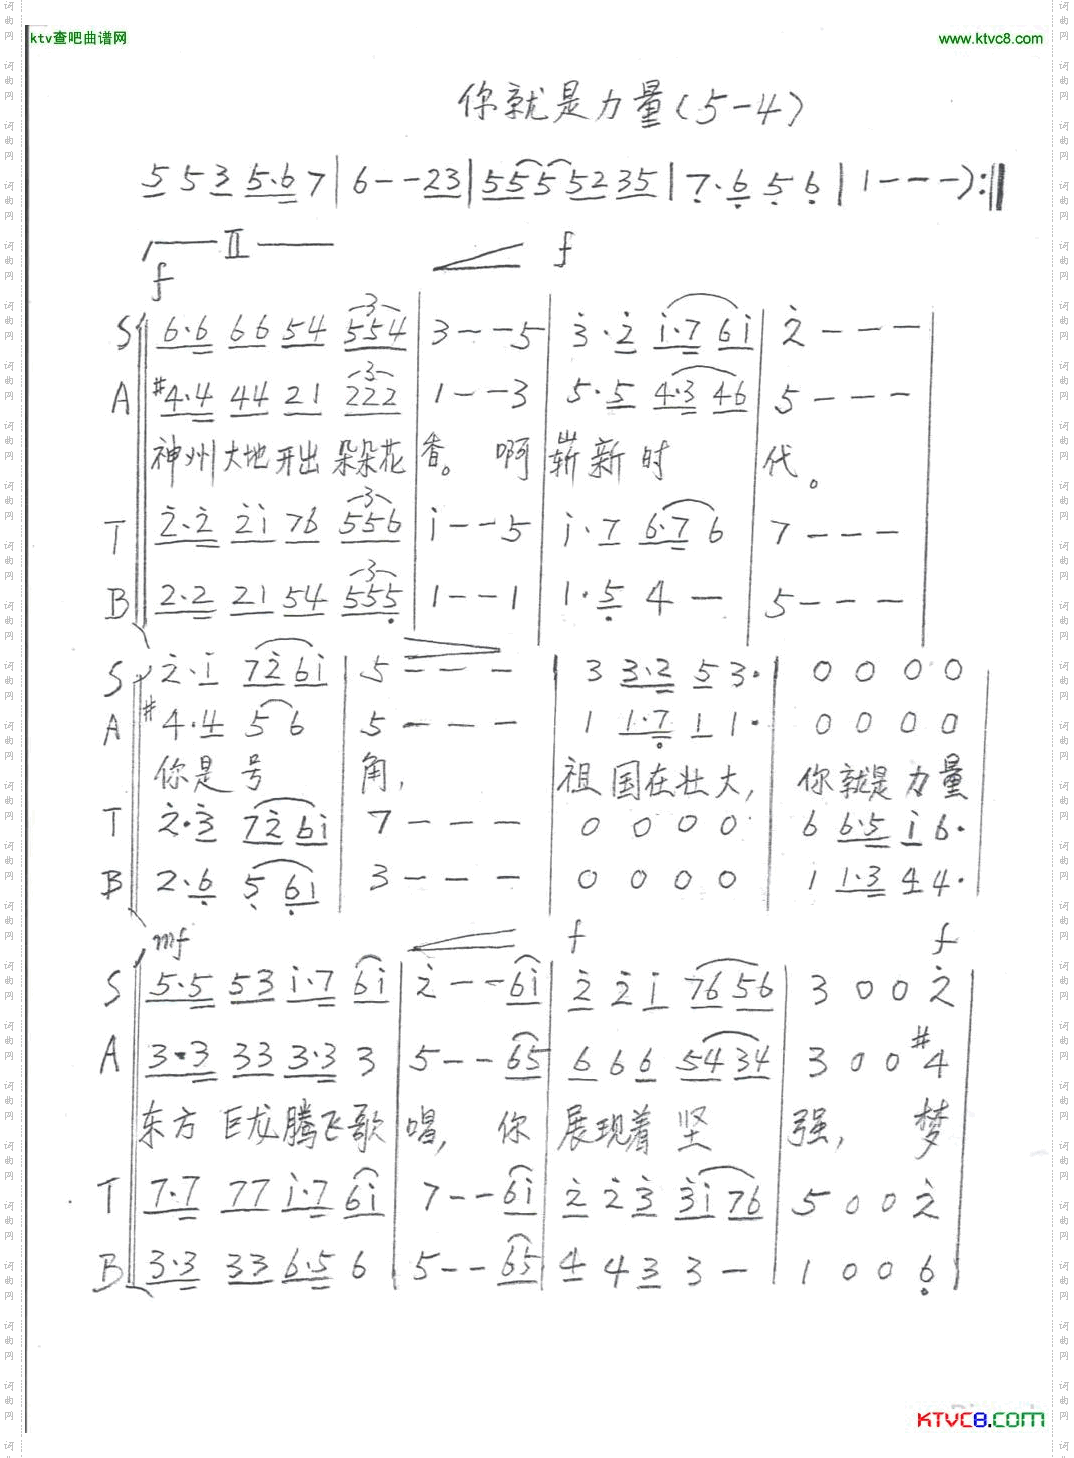 ktv查吧曲谱网 www.ktvc8.com
你就是力量(5-4)
5 5 3 5·6 7 | 6 - - 2 3 | 5 5 5 5 2 3 5 | 7· 6 5 6 | 1 - - - ) :||
II
f f
S 6·6 6 6 5 4 5 5 4 | 3 - - 5 | 3· 2 i·7 6 i | 2 - - - |
A #4·4 4 4 2 1 2 2 2 | 1 - - 3 | 5· 5 4·3 4 6 | 5 - - -
神州大地开出朵朵花香。 啊崭新时代。
T 2·2 2 i 7 6 5 5 6 | i - - 5 | i· 7 6·7 6 | 7 - - -
B 2·2 2 1 5 4 5 5 5 | 1 - - 1 | 1· 5 4 - | 5 - - -
S 2· i 7 2 6 i | 5 - - - | 3 3·2 5 3· | 0 0 0 0
A #4·4 5 6 | 5 - - - | 1 1·7 1 1· | 0 0 0 0
你是号角, 祖国在壮大, 你就是力量
T 2·3 7 2 6 i | 7 - - - | 0 0 0 0 | 6 6·5 i 6·
B 2·6 5 6 i | 3 - - - | 0 0 0 0 | 1 1·3 4 4·
mf f f
S 5·5 5 3 i·7 6 i | 2 - - 6 i | 2 2 i 7 6 5 6 | 3 0 0 2
A 3·3 3 3 3·3 3 | 5 - - 6 5 | 6 6 6 5 4 3 4 | 3 0 0 #4
东方巨龙腾飞歌唱, 你展现着坚强, 梦
T 7·7 7 7 i·7 6 i | 7 - - 6 i | 2 2 3 3 i 7 6 | 5 0 0 2
B 3·3 3 3 6·5 6 | 5 - - 6 5 | 4 4 3 3 - | 1 0 0 6
KTVC8.COM